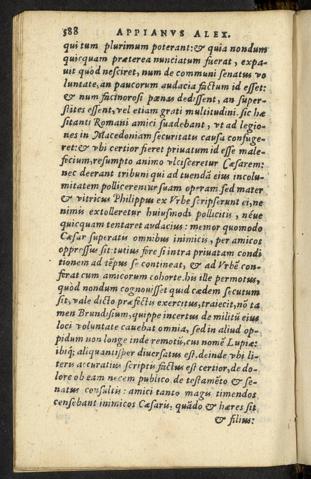 588 APPIANVS ALEX.
qui tum plurimum poterant: & quia nondum
quicquam præterea nunciatum fuerat, expa-
uit quòd nesciret, num de communi senatus uo
luntate, an paucorum audacia factum id esset:
& num facinorosi pœnas dedissent, an super-
stites essent, uel etiam grati multitudini. sic hæ
sitanti Romani amici suadebant, ut ad legio-
nes in Macedoniam securitatis causa confuge-
ret: & ubi certior fieret priuatum id esse male-
ficium, resumpto animo ulcisceretur Cæsarem:
nec deerant tribuni qui ad tuendā eius incolu-
mitatem pollicerentur suam operam. sed mater
& uitricus Philippus ex Vrbe scripserunt ei, ne
nimis extolleretur huiusmodi pollicitis, néue
quicquam tentaret audacius: memor quomodo
Cæsar superatis omnibus inimicis, per amicos
oppressus sit: tutius fore si intra priuatam condi
tionem ad tēpus se contineat, & ad Vrbē con-
ferat cum amicorum cohorte. his ille permotus,
quòd nondum cognouisset quid cædem secutum
sit, uale dicto præfectis exercitus, traiecit, nō ta
men Brundisium, quippe incertus de militū eius
loci uoluntate cauebat omnia, sed in aliud op-
pidum non longe inde remotū, cui nomē Lupiæ:
ibiq; aliquantisper diuersatus est. deinde ubi li-
teris accuratius scriptis factus est certior, de do-
lore ob eam necem publico, de testamēto & se-
natus consultis: amici tanto magis timendos
censebant inimicos Cæsaris, quādo & hæres sit
& filius: